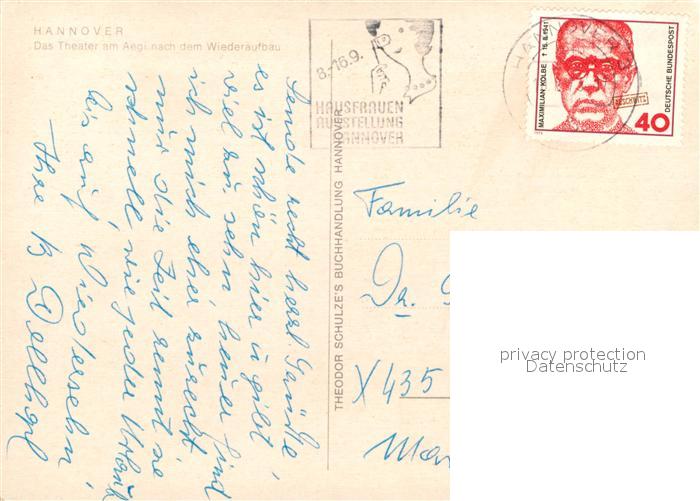 HANNOVER
Das Theater am Aegi nach dem Wiederaufbau
8.-16.9.
HAUSFRAUEN
AUSSTELLUNG
HANNOVER
HANNOVER
MAXIMILIAN KOLBE † 14.8.1941
AUSCHWITZ
DEUTSCHE BUNDESPOST
40
Sende recht herzl. Grüße
es ist schön hier u. gibt
viel zu sehn heuer find
ich mich eher zurecht
nur die Zeit rennt so
schnell, wie jeder Urlaub
bis auf Wiedersehn
Ihre
THEODOR SCHULZE'S BUCHHANDLUNG HANNOVER
Familie
Dr.
X435
privacy protection
Datenschutz